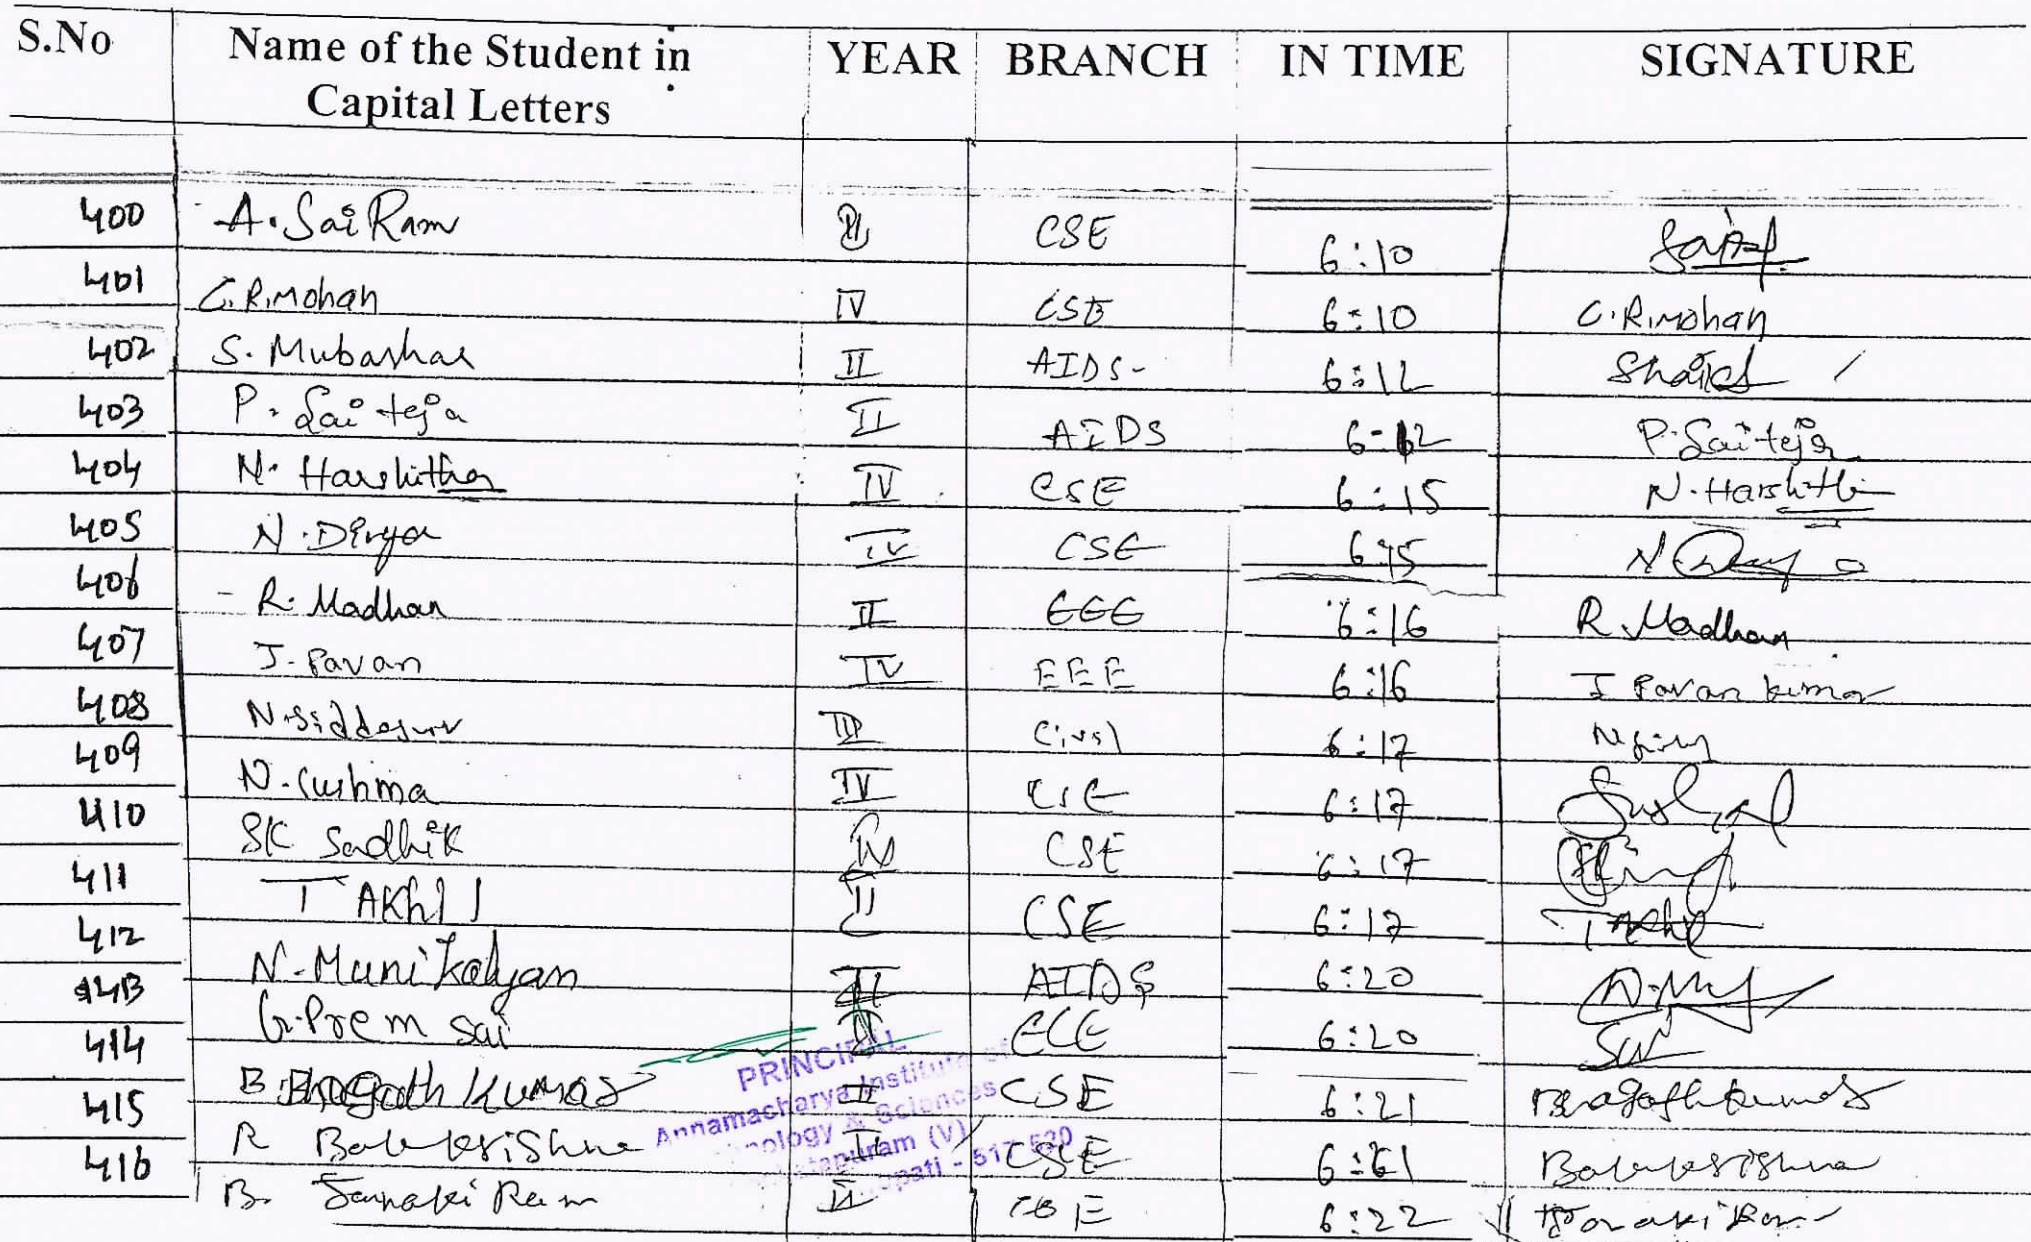 S.No Name of the Student in Capital Letters YEAR BRANCH IN TIME SIGNATURE
400 A. Sai Ram II CSE 6:10
401 C.R.Mohan IV CSE 6:10 C.R.Mohan
402 S. Mubashar II AIDS- 6:12 Shaick
403 P. Sai teja II AIDS 6:12 P. Sai teja
404 N. Harshitha IV CSE 6:15 N. Harshitha
405 N. Divya IV CSE 6:15 N
406 R. Madhan II EEE 6:16 R. Madhan
407 J. Pavan IV EEE 6:16 J Pavan kumar
408 N. Siddeswr III Civil 6:17
409 N. Sushma IV CSE 6:17
410 SK Sadhik IV CSE 6:17
411 T AKhil II CSE 6:17
412 N. Muni Kalyan II AIDS 6:20
413 G. Prem Sai II ECE 6:20 Sai
414 B Bhagath Kumar II CSE 6:21 Bhagath kumar
415 R Balakrishna II CSE 6:21 Balakrishna
416 B. Janaki Ram II CSE 6:22 Janaki Ram
PRINCIPAL
Annamacharya Institute of
Technology & Sciences
(V)
Tirupati - 517 520